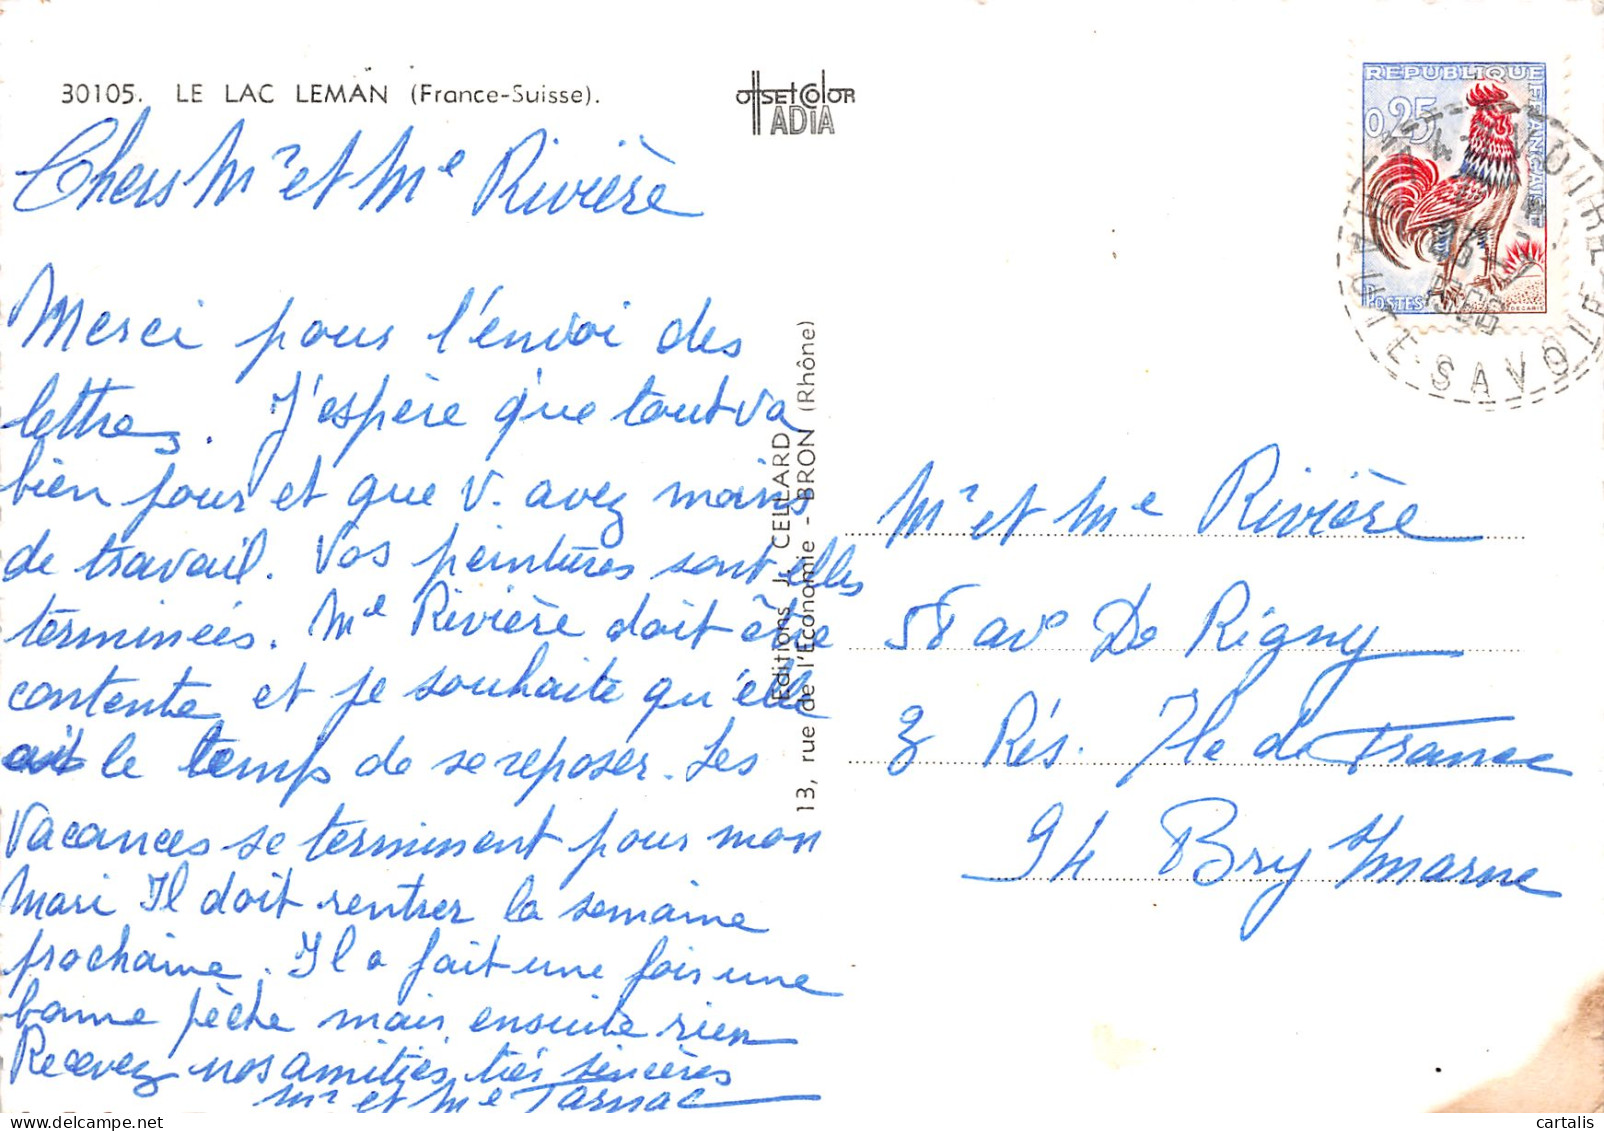 30105. LE LAC LEMAN (France-Suisse).
OffsetColor
ADIA
REPUBLIQUE FRANÇAISE
0,25
POSTES
DECARIS
HAUTE-SAVOIE
Chers Mr et Me Rivière
Merci pour l'envoi des
lettres. J'espère que tout va
bien pour et que V. avez moins
de travail. Vos peintures sont elles
terminées. Me Rivière doit être
contente et je souhaite qu'elle
ait le temps de se reposer. Les
Vacances se terminent pour mon
Mari Il doit rentrer la semaine
prochaine. Il a fait une fois une
bonne pêche mais ensuite rien
Recevez nos amitiés très sincères
Mr et Me Tarnac
Editions J. CELLARD
13, rue de l'Economie - BRON (Rhône)
Mr et Me Rivière
58 av De Rigny
3 Rés. Ile de France
94 Bry s/marne
cartalis